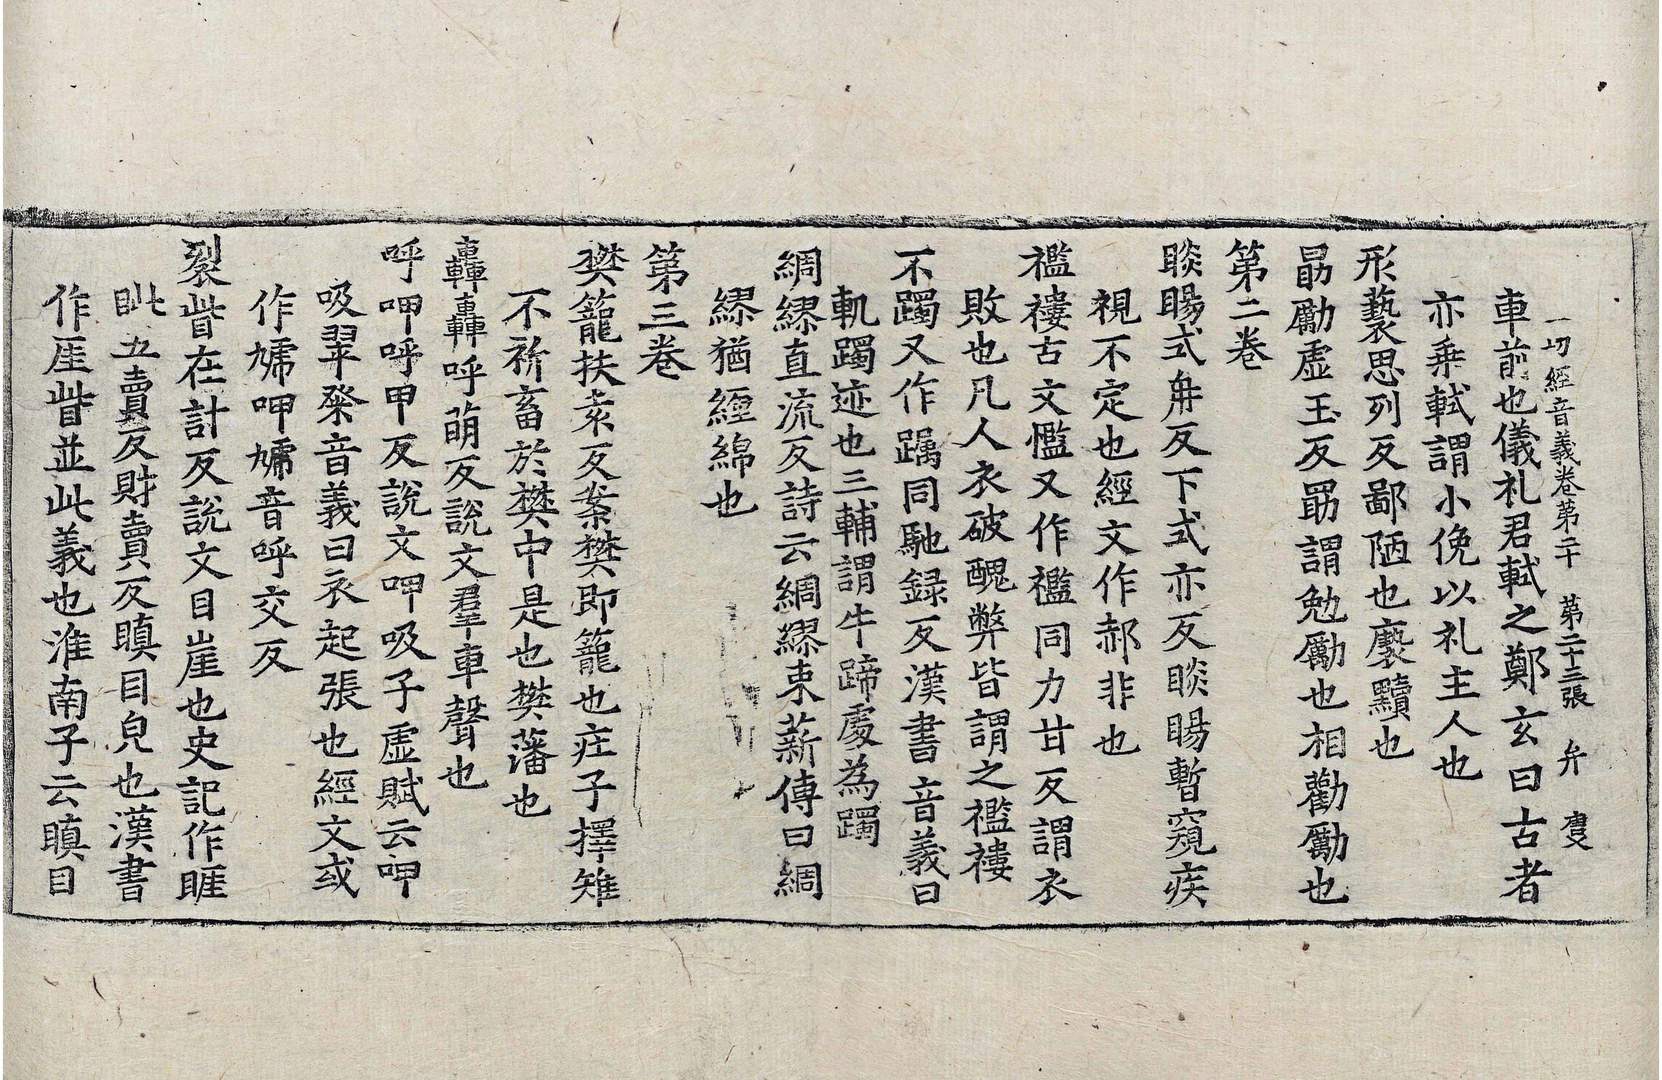 一切經音義卷第二十 第二十三張 弁
車前也儀礼君軾之鄭玄曰古者
亦乗軾謂小俛以礼主人也
形䙝思列反鄙陋也䙝黷也
勗勵虛玉反勗謂勉勵也相勸勵也
第二卷
睒睗式冉反下式亦反睒睗暫窺疾
視不定也經文作郝非也
襤褸古文㦨又作襤同力甘反謂衣
敗也凡人衣破醜弊皆謂之襤褸
不躅又作䠱同馳録反漢書音義曰
軌躅迹也三輔謂牛蹄處為躅
綢繆直流反詩云綢繆束薪傳曰綢
繆猶纏綿也
第三卷
樊籠扶袁反案樊即籠也庄子擇雉
不祈畜於樊中是也樊藩也
轟轟呼萌反說文羣車聲也
呼呷呼甲反說文呷吸子虛賦云呷
吸翠粲音義曰衣起張也經文或
作㗕呷㗕音呼交反
裂眥在計反說文目崖也史記作睚
眦五賣反財賣反瞋目皃也漢書
作厓眥並此義也淮南子云瞋目